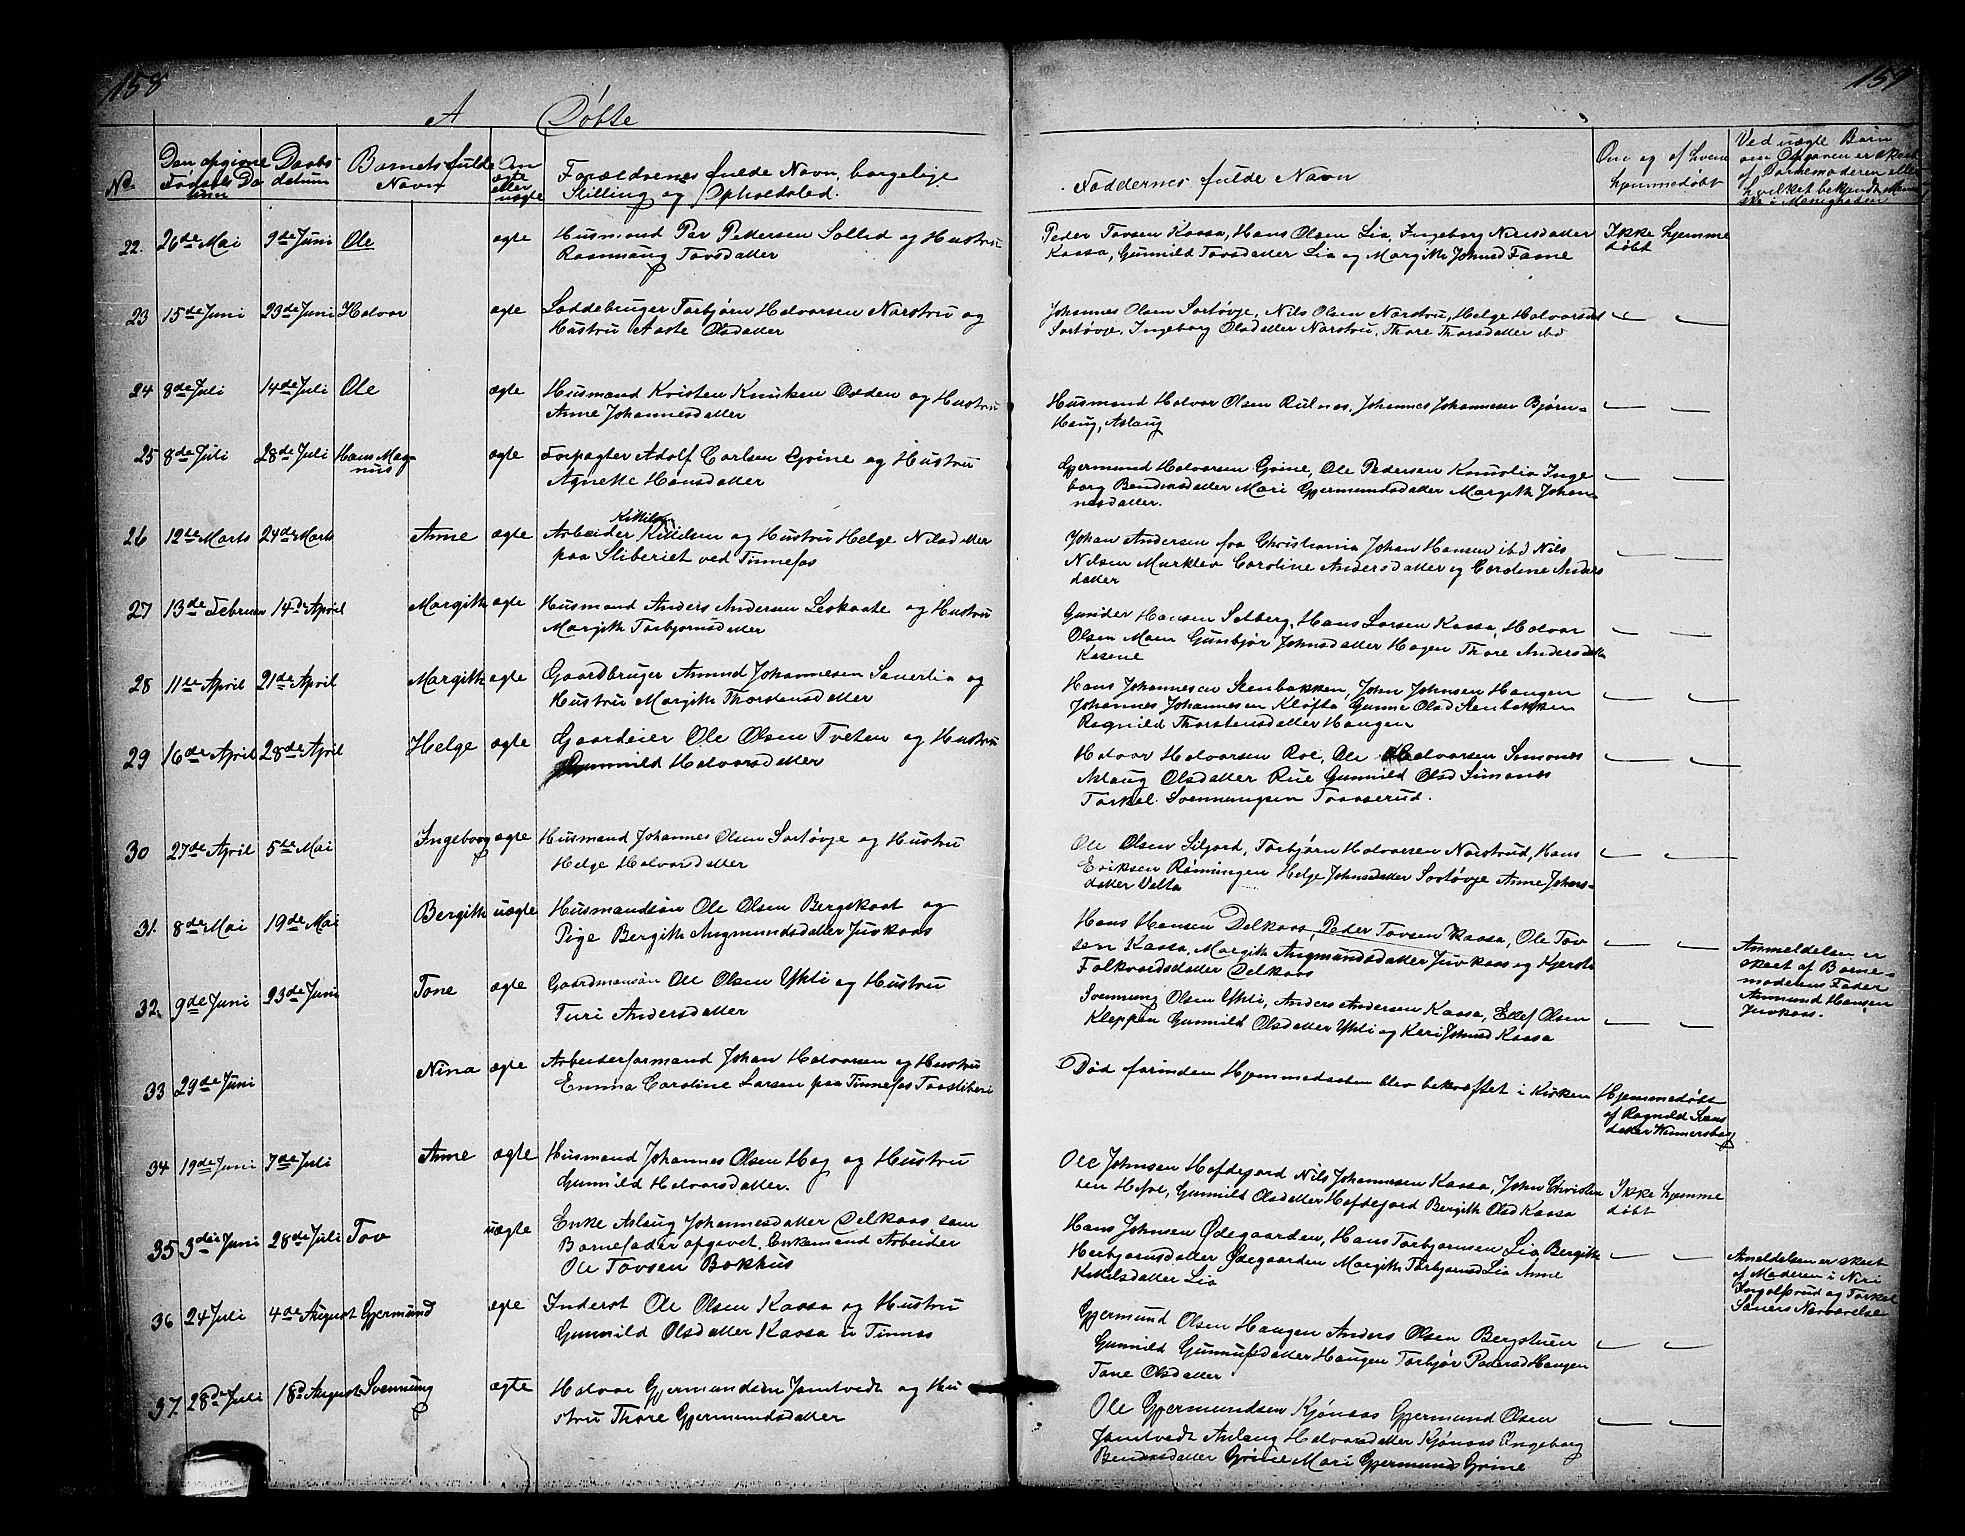 158
A Døbte
No.
Den opgivne Fødsels Datum
Daabsdatum
Barnets fulde Navn
Om ægte eller uægte
Forældrenes fulde Navn, borgelige
Stilling og Opholdssted.
22. 26de Mai 9de Juni Ole ægte Husmand Per Pedersen Sollid og Hustru
Rasmaug Tovsdatter
23 15de Juni 23de Juni Halvor ægte Torbjørn Halvorsen Narstru og
Hustru Aaste Olsdatter
24 8de Juli 14de Juli Ole ægte Husmand Kristen og Hustru
Anne Johannesdatter
25 8de Juli 28de Juli Hans Mag-
nus ægte Forpagter Adolf Carlsen Grine og Hustru
Agnethe Hansdatter
26 12te Marts 24de Marts Anne ægte Arbeider Kittilsen og Hustru Helge Nilsdatter
paa Sliberiet ved Tinnefos
27 13de Februar 14de April Margith ægte Husmand Anders Andersen Leskaate og Hustru
Margith Torbjørnsdatter
28 11te April 21de April Margith ægte Gaardbruger Amund Johannesen Sauerlia og
Hustru Margith Thorstensdatter
29 16de April 28de April Helge ægte Gaardeier Ole Olsen Tveten og Hustru
Gunnild Halvorsdatter
30 27de April 5te Mai Ingeborg ægte Husmand Johannes Olsen Sortøvje og Hustru
Helge Halvorsdatter
31. 8de Mai 19de Mai Bergith uægte Husmandsøn Ole Olsen Bergskaat og
Pige Bergith Augmundsdatter Juvkaas
32. 9de Juni 23de Juni Tone ægte Gaardmansøn Ole Olsen Ykli og Hustru
Turi Andersdatter
33 29de Juni Nina ægte Arbeiderformand Johan Halvorsen og Hustru
Emma Caroline Larsen paa Tinnefos Træsliberi
34 19de Juni 7de Juli Anne ægte Husmand Johannes Olsen Hag og Hustru
Gunnild Halvorsdatter.
35 3die Juni 28de Juli Tov uægte Enke Aslaug Johannesdatter Delkaas, som
Barnefader opgivet Enkemand Arbeider
Ole Tovsen Bakhus
36 24 Juli 4de August Gjermund ægte Inderst Ole Olsen Kaasa og Hustru
Gunnild Olsdatter Kaasa i Tinnes
37. 28de Juli 18de August Svennung ægte Halvor Gjermundsen Jamtvedt og Hu
stru Thore Gjermundsdatter
159
Faddernes fulde Navn
Om og af hvem
hjemmedøbt
Ved uægte Børn
om Opgaven er skeet
af Barnemoderen eller
hvilket bekjendt Menne
ske i Menigheden
Peder Tovsen Kaasa, Hans Olsen Lia, Ingeborg Nirisdatter Ikke hjemme
Kaasa, Gunnild Tovsdatter Lia og Margith Johnsd døbt
Johannes Olsen Sortøvje, Nils Olsen Narstru, Helge Halvorsdat
Sortøvje, Ingeborg Olsdatter Narstru, Thore Thorsdatter ibd
Husmand Halvor Olsen Rulnes, Johannes Johannesen Bjørn-
Haug, Aslaug
Gjermund Halvorsen Grine, Ole Pedersen Inge
borg Bendixsdatter Mari Gjermundsdatter Margith Johan-
nesdatter.
Johan Andersen fra Christiania Johan Hansen ibd Nils
Nilsen Caroline Andersdatter og Cardine Anders
datter
Gunder Hansen Solberg, Hans Larsen Kaasa, Halvor
Olsen Moen Gunbjør Johnsdatter Hagen Thore Andersdatter
Kasene
Hans Johannesen Stenbakken, John Johnsen Haugen
Johannes Johannesen Kløfta Gunne Olsd Stenbakken
Ragnild Thorstensdatter Haugen
Halvor Halvorsen Roe, Ole Halvorsen Simones
Aslaug Olsdatter Rue Gunnild Olsd Simones
Torkel Svennungsen Traaserud.
Ole Olsen Siljord, Torbjørn Halvorsen Narstrud, Hans
Eriksen Rønningen Helge Johnsdatter Sortøvje Anne Johans-
datter Velta
Hans Hansen Delkaas, Peder Tovsen Kaasa, Ole Tov
sen Kaasa, Margith Augmundsdatter Juvkaas og Kjersti
Folkvordsdatter Delkaas
Anmeldelsen er
skeet af Barne-
moderens Fader
Aamund Hansen
Juvkaas.
Svennung Olsen Ykli, Anders Andersen Kaasa, Ellef Olsen
Kleppen Gunnild Olsdatter Ykli og Kari Johnsd Kaasa
Død forinden Hjemmedaaben blev bekræftet i Kirken Hjemmedøbt
af Ragnild Svens
datter Wennersborg
Ole Johnsen Hofdegard Nils Johannesen Kaasa, John Christen
sen Hofve, Gunnild Olsdatter Hofdegard Bergith Olsd Kaasa
Ikke hjemme
døbt
Hans Johnsen Ødegaarden, Hans Torbjørnsen Lia Bergith
Herbjørnsdatter Ødegaarden Margith Torbjørnsd Lia Anne
Kittilsdatter Lia
Ameldelsen er skeet
af Moderen i Niri
Ingolfsrud og Torkel
Saners Nærværelse
Gjermund Olsen Haugen Anders Olsen Bergstuen
Gunnild Gunnufsdatter Haugen Torbjør Pedersd Haugen
Tone Olsdatter
Ole Gjermundsen Kjønaas Gjermund Olsen
Jamtvedt Aslaug Halvorsdatter Kjønaas Ingeborg
Bendixsdatter Grine Mari Gjermunds Grine